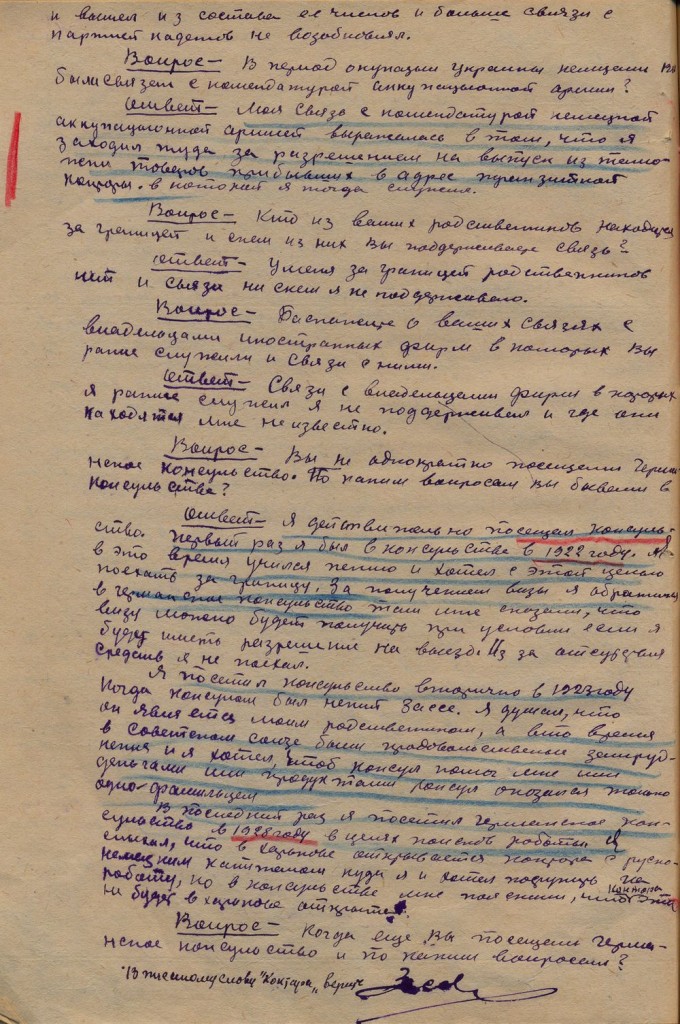 и вышел из состава ее членов и больше связи с
партией кадетов не возобновлял.
Вопрос- В период окупации Украины немцами
были связан с комендатурой оккупационной армии?
Ответ- Моя связь с комендатурой немецкой
аккупационной армией выражалась в том, что я
заходил туда за разрешением на выпуск из тамо-
жни товаров прибывших в адрес транзитной
конторы. в которой я тогда служил.
Вопрос- Кто из ваших родственников находится
за границей и с кем из них Вы поддерживаете связь?
Ответ- У меня за границей родственников
нет и связи ни с кем я не поддерживаю.
Вопрос- Раскажите о ваших связях с
владельцами иностранных фирм в которых Вы
ранее служили и связи с ними.
Ответ- Связи с владельцами фирм в которых
я ранее служил я не поддерживал и где они
находятся мне не известно.
Вопрос- Вы не однократно посещали Герман
ское консульство. По каким вопросам Вы бывали в
консульстве?
Ответ- Я действительно посещал консуль-
ство. Первый раз я был в консульстве в 1922 году. Я
в это время учился пению и хотел с этой целью
поехать за границу. За получением визы я обратился
в германское консульство там мне сказали, что
визу можно будет получить при условии если я
буду иметь разрешение на выезд. Из за отсутствия
средств я не поехал.
Я посетил консульство вторично в 1923 году
Когда консулом был некий Зассе. Я думал, что
он является моим родственником, а в то время
в советском союзе были продовольственные затруд-
нения и я хотел, чтоб консул помог мне или
деньгами или продуктами консул оказался только
одно-фамильцем
В последний раз я посетил германское кон-
сульство в 1928 году в целях поисков работы. Я
слыхал, что в Харькове открывается контора с русско-
немецким капиталом куда я и хотел поступить на
работу, но в консульстве мне пояснили, что эта контора
не будет в Харькове открыта.
Вопрос- Когда еще Вы посещали герма-
нское консульство и по каким вопросам?
"В писаному слово "Контора" верить